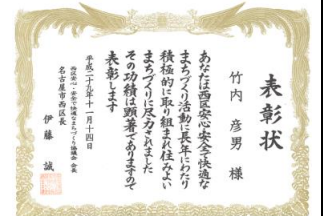 表彰状
竹内 彦男 様
あなたは西区安心・安全で快適な
まちづくり活動に長年にわたり
積極的に取り組まれ住みよい
まちづくりに尽力されました
その功績は顕著でありますので
表彰します
平成二十九年十一月十四日
西区安心・安全で快適なまちづくり協議会 会長
名古屋市西区長
伊藤 誠